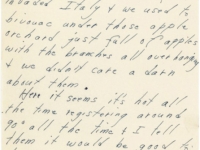 invaded Italy & we used to
bivouac under those apple
orchard just full of apples
with the branches all overhanging
& we didn't care a darn
about them.
Here it seems it's hot all
the time registering around
90° all the time & I tell
them it would be good to